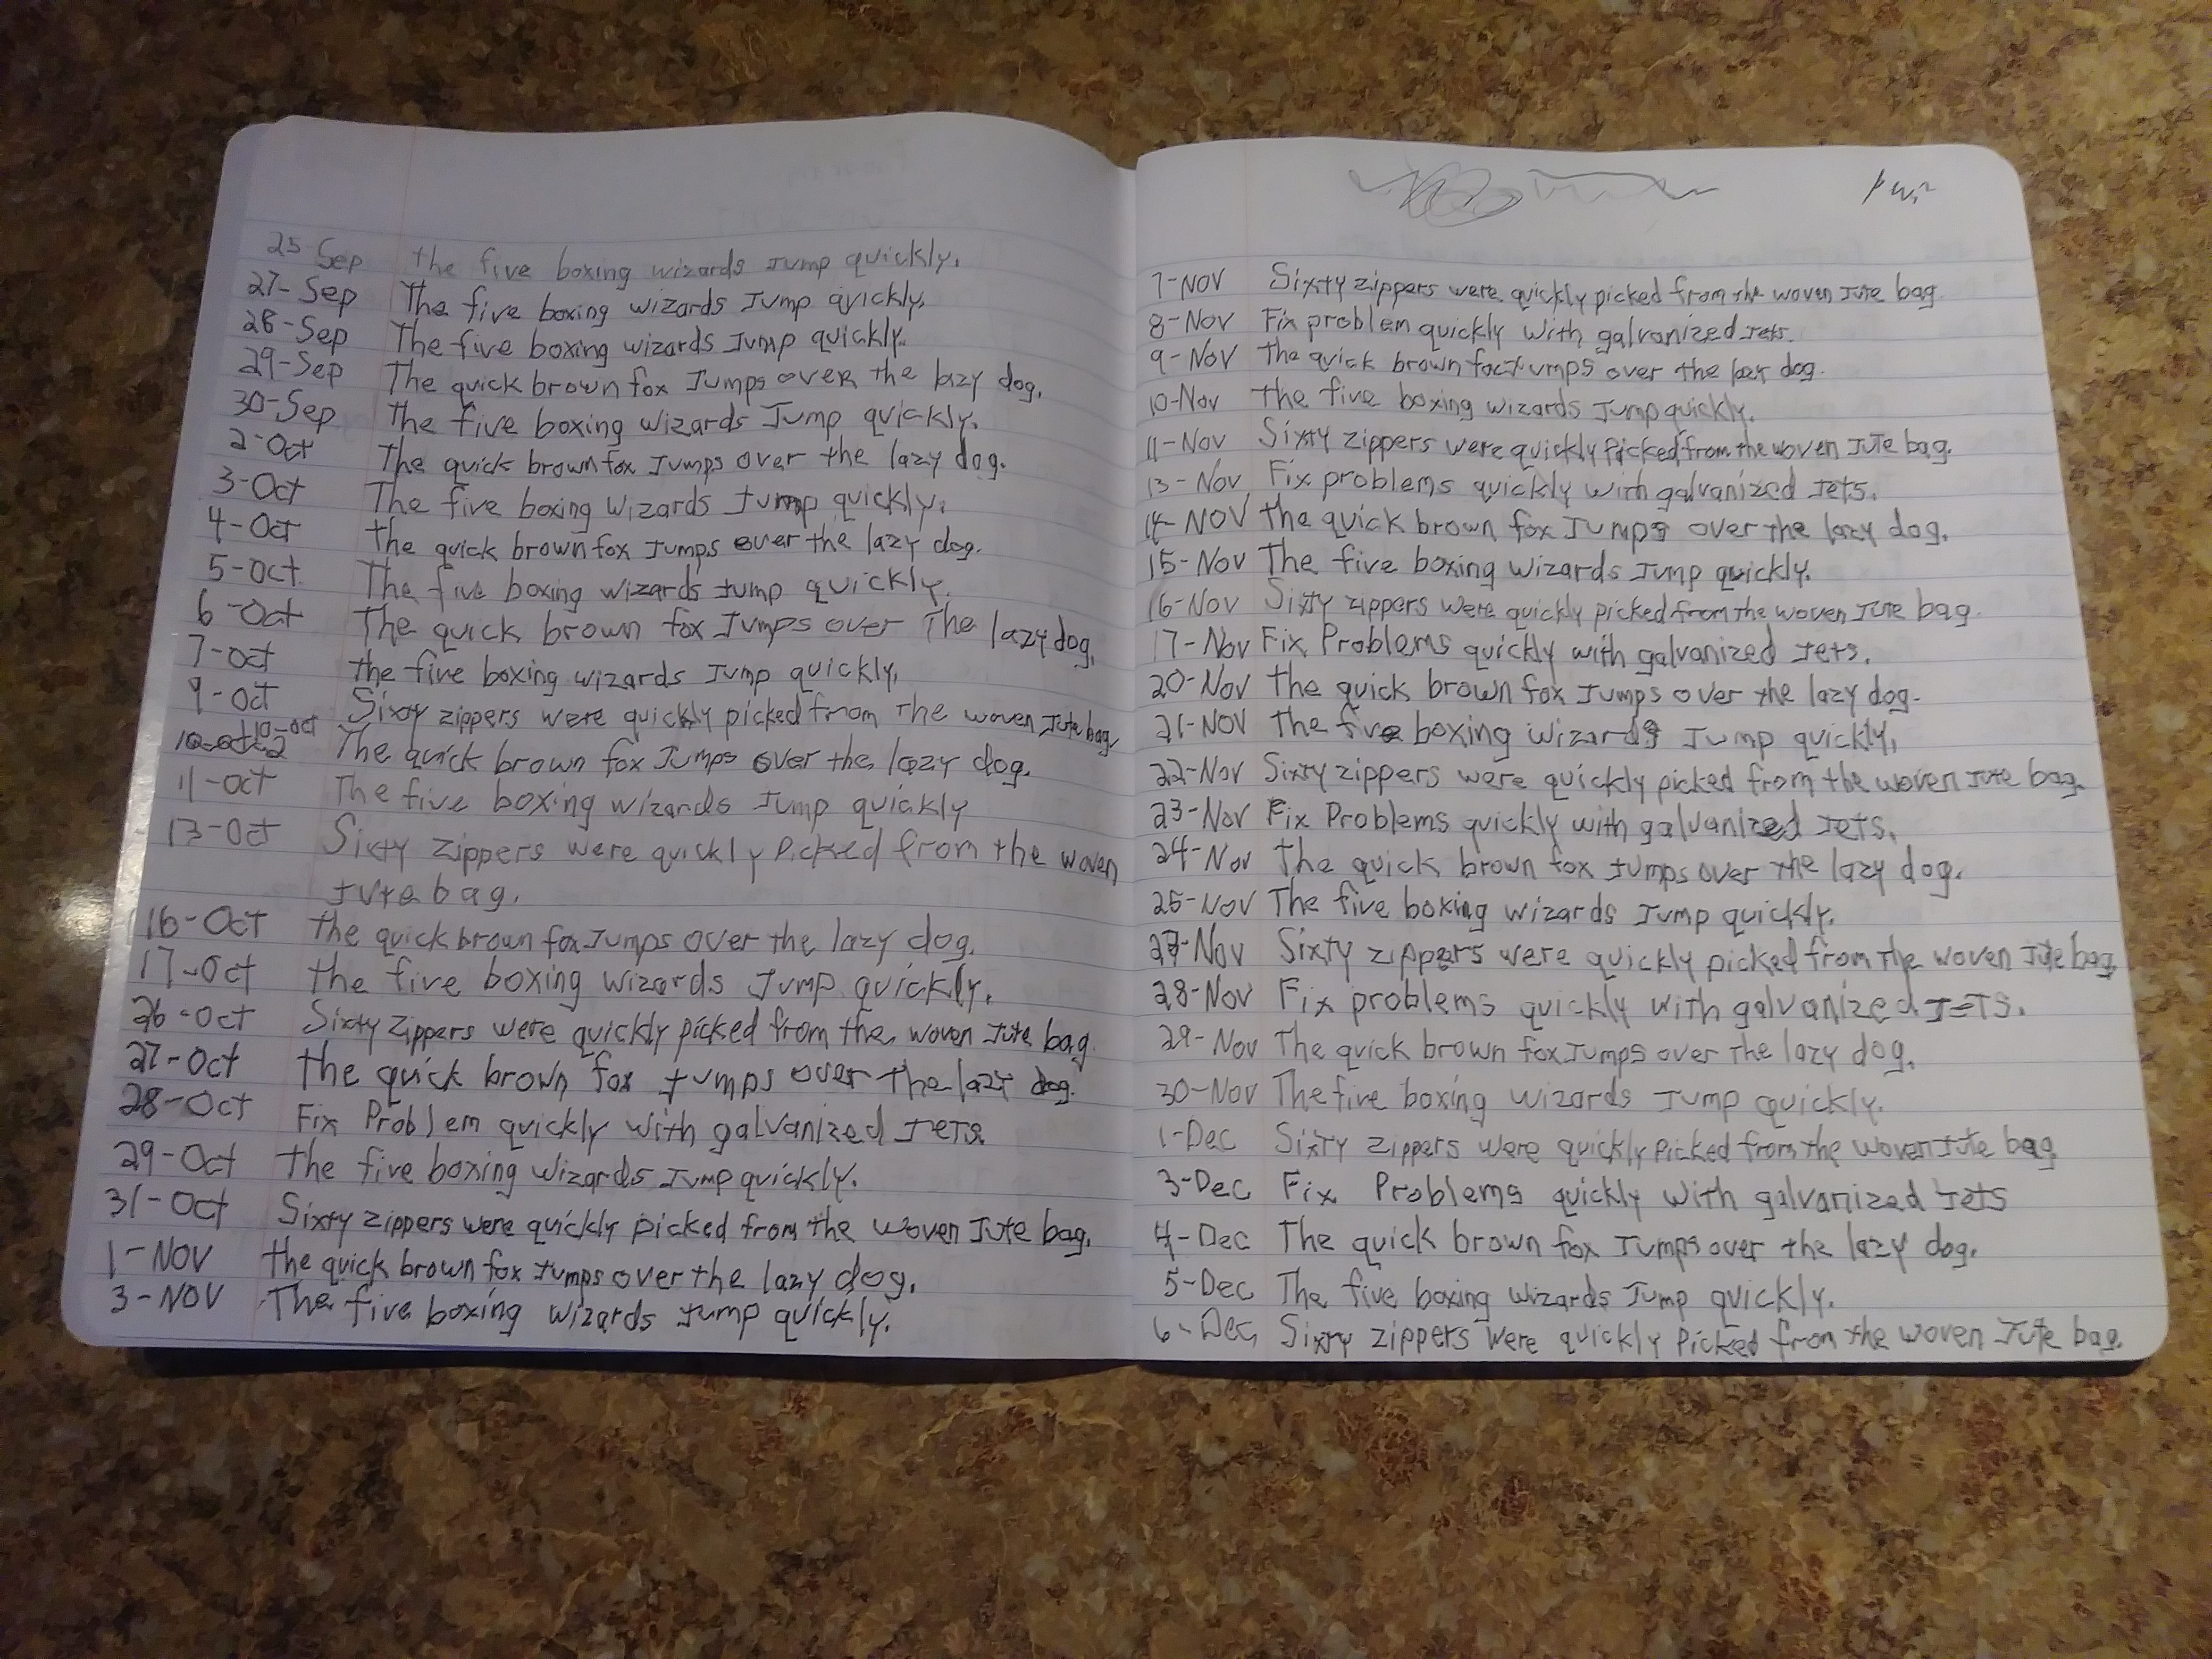 25-Sep the five boxing wizards Jump quickly.
27-Sep The five boxing wizards Jump quickly.
28-Sep The five boxing wizards Jump quickly.
29-Sep The quick brown fox Jumps over the lazy dog.
30-Sep The five boxing wizards Jump quickly.
2-Oct The quick brown fox Jumps over the lazy dog.
3-Oct The five boxing wizards Jump quickly.
4-Oct the quick brown fox Jumps over the lazy dog.
5-Oct The five boxing wizards Jump quickly.
6-Oct The quick brown fox Jumps over The lazy dog.
7-Oct the five boxing wizards Jump quickly.
9-Oct Sixty zippers were quickly picked from The woven Jute bag.
10-oct The quick brown fox Jumps over the lazy dog.
11-Oct The five boxing wizards Jump quickly
13-Oct Sixty Zippers were quickly Picked from the woven
Jute bag.
16-Oct the quick brown fox Jumps over the lazy dog.
17-Oct the five boxing wizards Jump quickly.
26-Oct Sixty Zippers were quickly picked from the woven Jute bag.
27-Oct the quick brown fox Jumps over the lazy dog.
28-Oct Fix Problem quickly with galvanized Jets
29-Oct the five boxing wizards Jump quickly.
31-Oct Sixty zippers were quickly picked from the woven Jute bag.
1-NOV the quick brown fox Jumps over the lazy dog.
3-NOV The five boxing wizards Jump quickly.
7-NOV Sixty zippers were quickly picked from the woven Jute bag
8-Nov Fix problem quickly with galvanized Jets.
9-Nov the quick brown fox Jumps over the lazy dog.
10-Nov the five boxing wizards Jump quickly.
11-Nov Sixty zippers were quickly Picked from the woven Jute bag.
13-Nov Fix problems quickly with galvanized Jets.
14-NOV the quick brown fox Jumps over the lazy dog.
15-Nov The five boxing wizards Jump quickly.
16-Nov Sixty zippers were quickly picked from the woven Jute bag.
17-Nov Fix Problems quickly with galvanized Jets.
20-Nov the quick brown fox Jumps over the lazy dog.
21-NOV The five boxing wizards Jump quickly.
22-Nov Sixty zippers were quickly picked from the woven Jute bag.
23-Nov Fix Problems quickly with galvanized Jets.
24-Nov The quick brown fox Jumps over the lazy dog.
25-NOV The five boxing wizards Jump quickly.
27-Nov Sixty zippers were quickly picked from the woven Jute bag.
28-Nov Fix problems quickly with galvanized Jets.
29-Nov The quick brown fox Jumps over the lazy dog.
30-Nov The five boxing wizards Jump quickly.
1-Dec Sixty zippers were quickly Picked from the woven Jute bag
3-Dec Fix Problems quickly with galvanized Jets
4-Dec The quick brown fox Jumps over the lazy dog.
5-Dec The five boxing wizards Jump quickly.
6-Dec Sixty zippers were quickly Picked from the woven Jute bag.